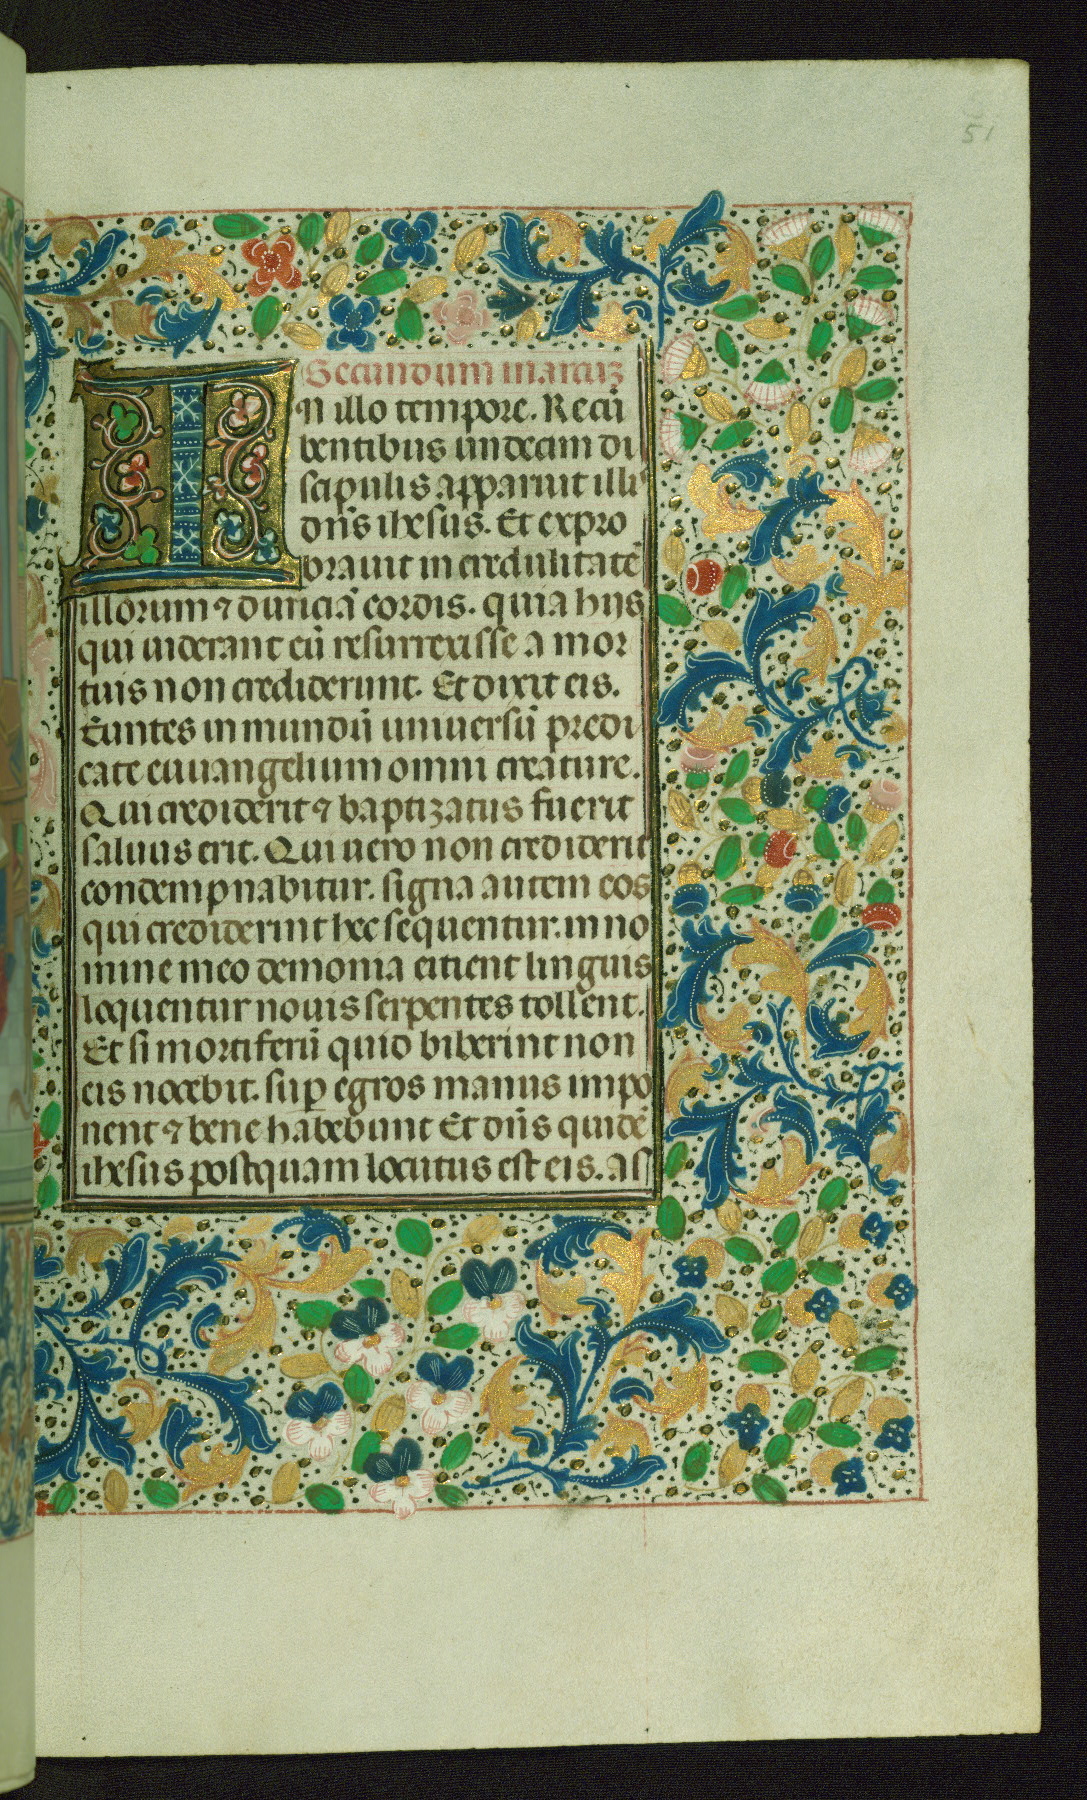 51
Secundum marcuz
In illo tempore. Recū
bentibus undecim di
scipulis apparuit illis
dn̄s ihesus. Et expro
bravit incredulitatē
illorum ⁊ duriciā cordis. quia hijs
qui viderant eū resurrexisse a mor
tuis non crediderunt. Et dixit eis.
Euntes in mundū universū predi
cate euuangelium omni creature.
Qui crediderit ⁊ baptizatus fuerit
salvus erit. Qui vero non crediderit
condempnabitur. signa autem eos
qui crediderint hec sequentur. in no
mine meo demonia eitient linguis
loquentur novis serpentes tollent.
Et si mortiferū quid biberint non
eis nocebit. sup̄ egros manus impo
nent ⁊ bene habebunt Et dn̄s quidē
ihesus postquam locutus est eis. as